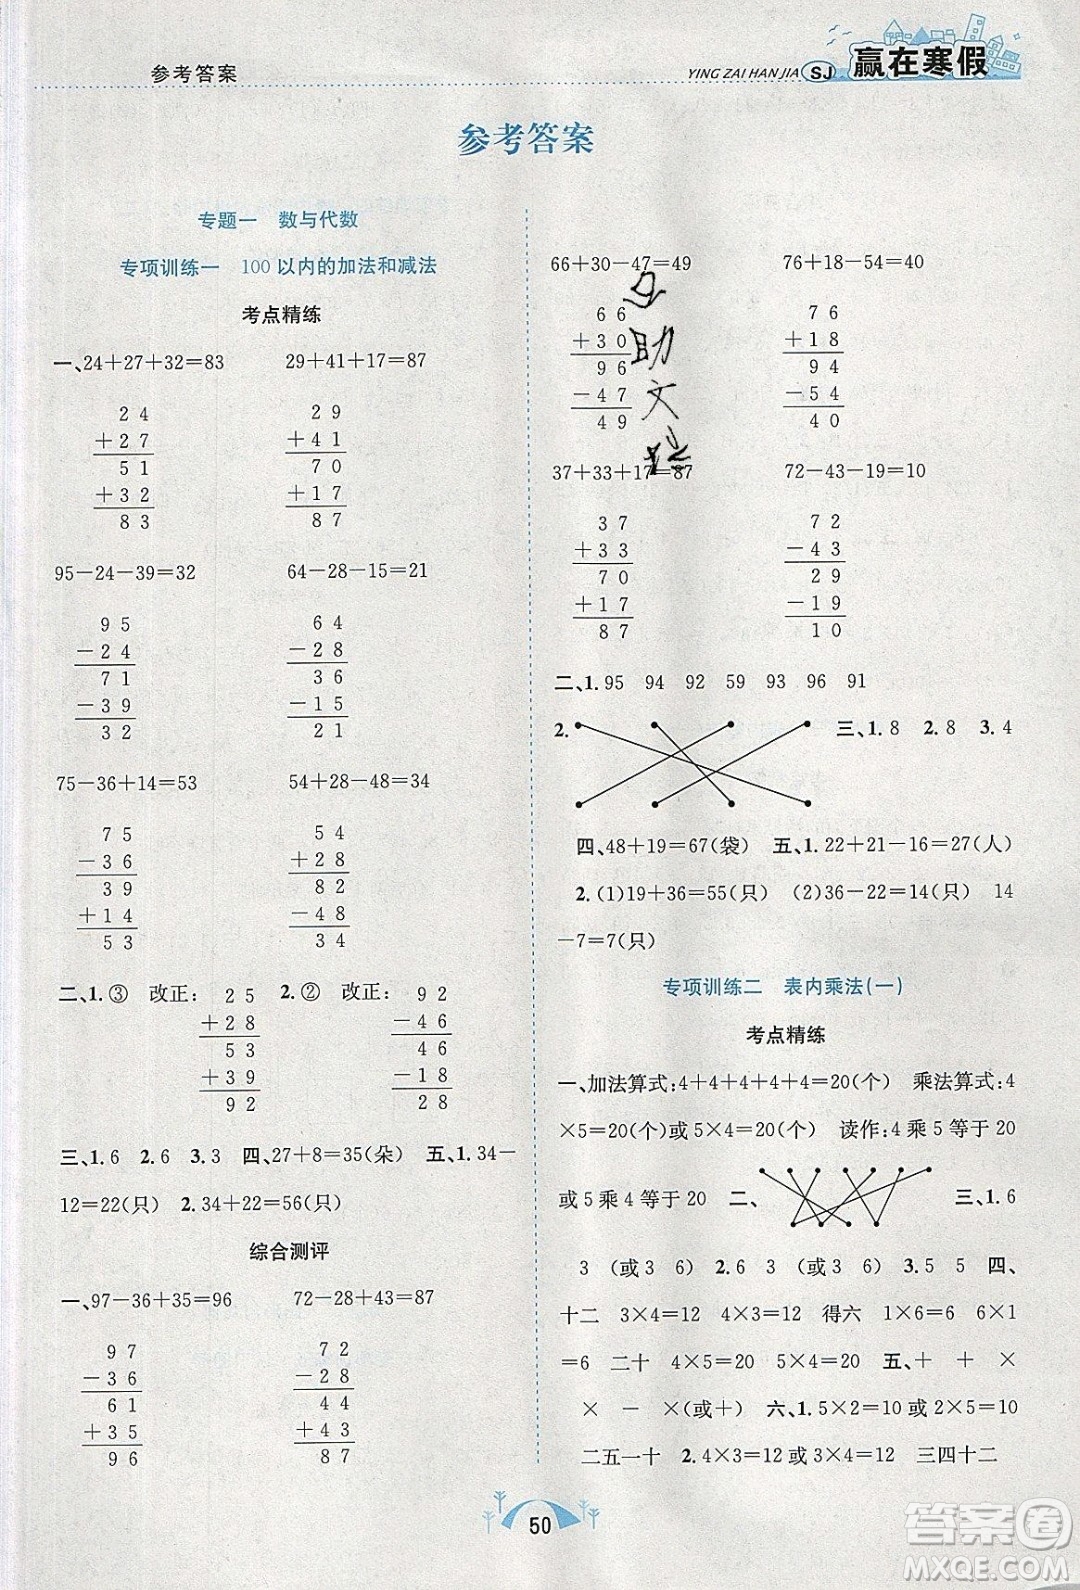 参考答案
YING ZAI HAN JIA SJ 赢在寒假
参考答案
专题一 数与代数
专项训练一 100以内的加法和减法
考点精练
一、24+27+32=83 29+41+17=87
2 4 2 9
+2 7 +4 1
5 1 7 0
+3 2 +1 7
8 3 8 7
95-24-39=32 64-28-15=21
9 5 6 4
-2 4 -2 8
7 1 3 6
-3 9 -1 5
3 2 2 1
75-36+14=53 54+28-48=34
7 5 5 4
-3 6 +2 8
3 9 8 2
+1 4 -4 8
5 3 3 4
二、1.③ 改正: 2 5 2.② 改正: 9 2
+2 8 -4 6
5 3 4 6
+3 9 -1 8
9 2 2 8
三、1.6 2.6 3.3 四、27+8=35(朵) 五、1.34-
12=22(只) 2.34+22=56(只)
综合测评
一、97-36+35=96 72-28+43=87
9 7 7 2
-3 6 -2 8
6 1 4 4
+3 5 +4 3
9 6 8 7
66+30-47=49 76+18-54=40
6 6 7 6
+3 0 +1 8
9 6 9 4
-4 7 -5 4
4 9 4 0
37+33+17=87 72-43-19=10
3 7 7 2
+3 3 -4 3
7 0 2 9
+1 7 -1 9
8 7 1 0
二、1.95 94 92 59 93 96 91
2. 三、1.8 2.8 3.4
四、48+19=67(袋) 五、1.22+21-16=27(人)
2.(1)19+36=55(只) (2)36-22=14(只) 14
-7=7(只)
专项训练二 表内乘法(一)
考点精练
一、加法算式:4+4+4+4+4=20(个) 乘法算式:4
×5=20(个)或5×4=20(个) 读作:4乘5等于20
或5乘4等于20 二、 三、1.6
3 (或3 6) 2.6 3 (或3 6) 3.5 5 四、
十二 3×4=12 4×3=12 得六 1×6=6 6×1
=6 二十 4×5=20 5×4=20 五、+ + ×
× - ×(或+) 六、1.5×2=10 2×5=10
二五一十 2.4×3=12或3×4=12 三四十二
50
答案圈
MXQE.COM